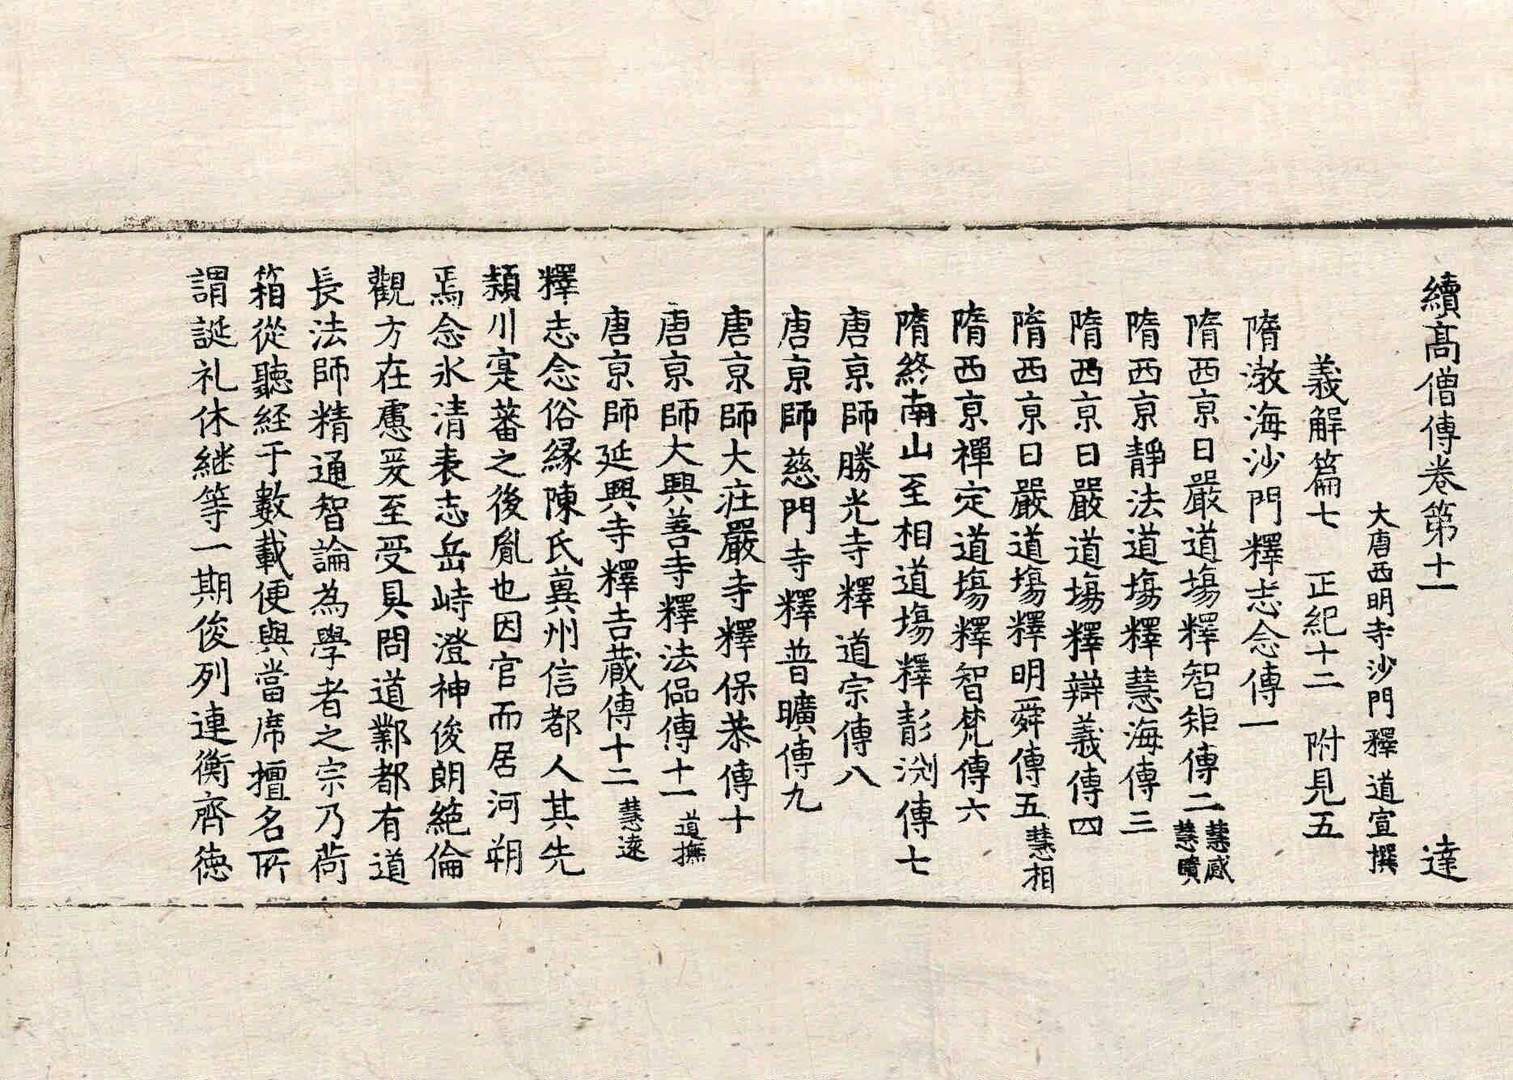 續高僧傳卷第十一 達
大唐西明寺沙門釋道宣撰
義解篇七 正紀十二 附見五
隋渤海沙門釋志念傳一
隋西京日嚴道場釋智矩傳二 慧感 慧賾
隋西京靜法道塲釋慧海傳三
隋西京日嚴道塲釋辯義傳四
隋西京日嚴道塲釋明舜傳五 慧相
隋西京禪定道塲釋智梵傳六
隋終南山至相道塲釋彭渕傳七
唐京師勝光寺釋道宗傳八
唐京師慈門寺釋普曠傳九
唐京師大莊嚴寺釋保恭傳十
唐京師大興善寺釋法侶傳十一 道撫
唐京師延興寺釋吉藏傳十二 慧遠
釋志念俗緣陳氏冀州信都人其先
潁川寔蕃之後胤也因官而居河朔
焉念氷清表志岳峙澄神俊朗絕倫
觀方在慮爰至受具問道鄴都有道
長法師精通智論為學者之宗乃荷
箱從聽經于數載便與當席擅名所
謂誕礼休継等一期俊列連衡齊德